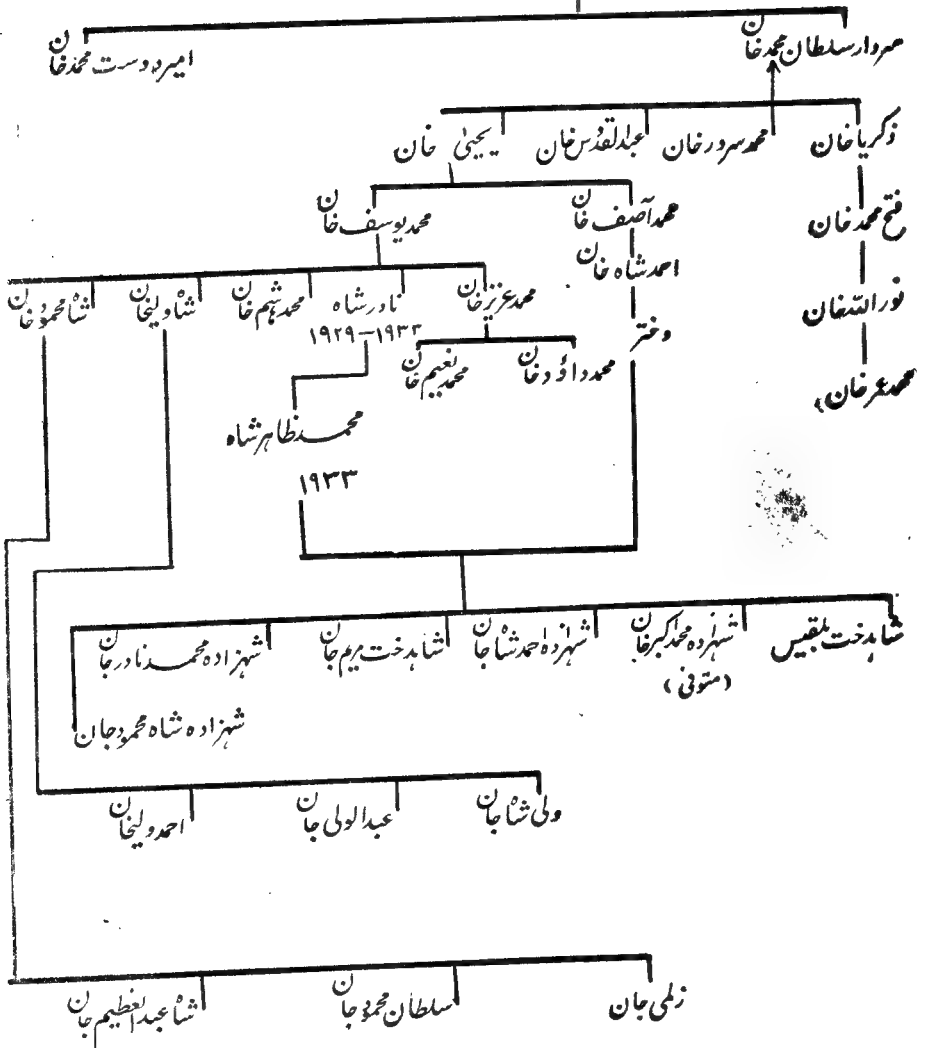 سردار سلطان محمد خان
امیر دوست محمد خان
ذکریا خان
محمد سرور خان
عبدالقدس خان
یحییٰ خان
فتح محمد خان
محمد آصف خان
محمد یوسف خان
احمد شاہ خان
نور اللہ خان
محمد عزیز خان
نادر شاہ
محمد ہشم خان
شاہ ولیخان
شاہ محمود خان
۱۹۲۹–۱۹۳۳
دختر
محمد داؤد خان
محمد نعیم خان
محمد عمر خان
محمد ظاہر شاہ
۱۹۳۳
شاہدخت بلقیس
شہزادہ محمد اکبر خان
شہزادہ احمد شاہ جان
شاہدخت مریم جان
شہزادہ محمد نادر جان
(متوفی)
شہزادہ شاہ محمود جان
ولی شاہ جان
عبدالولی جان
احمد ولیخان
زلمی جان
سلطان محمود جان
شاہ عبدالعظیم جان